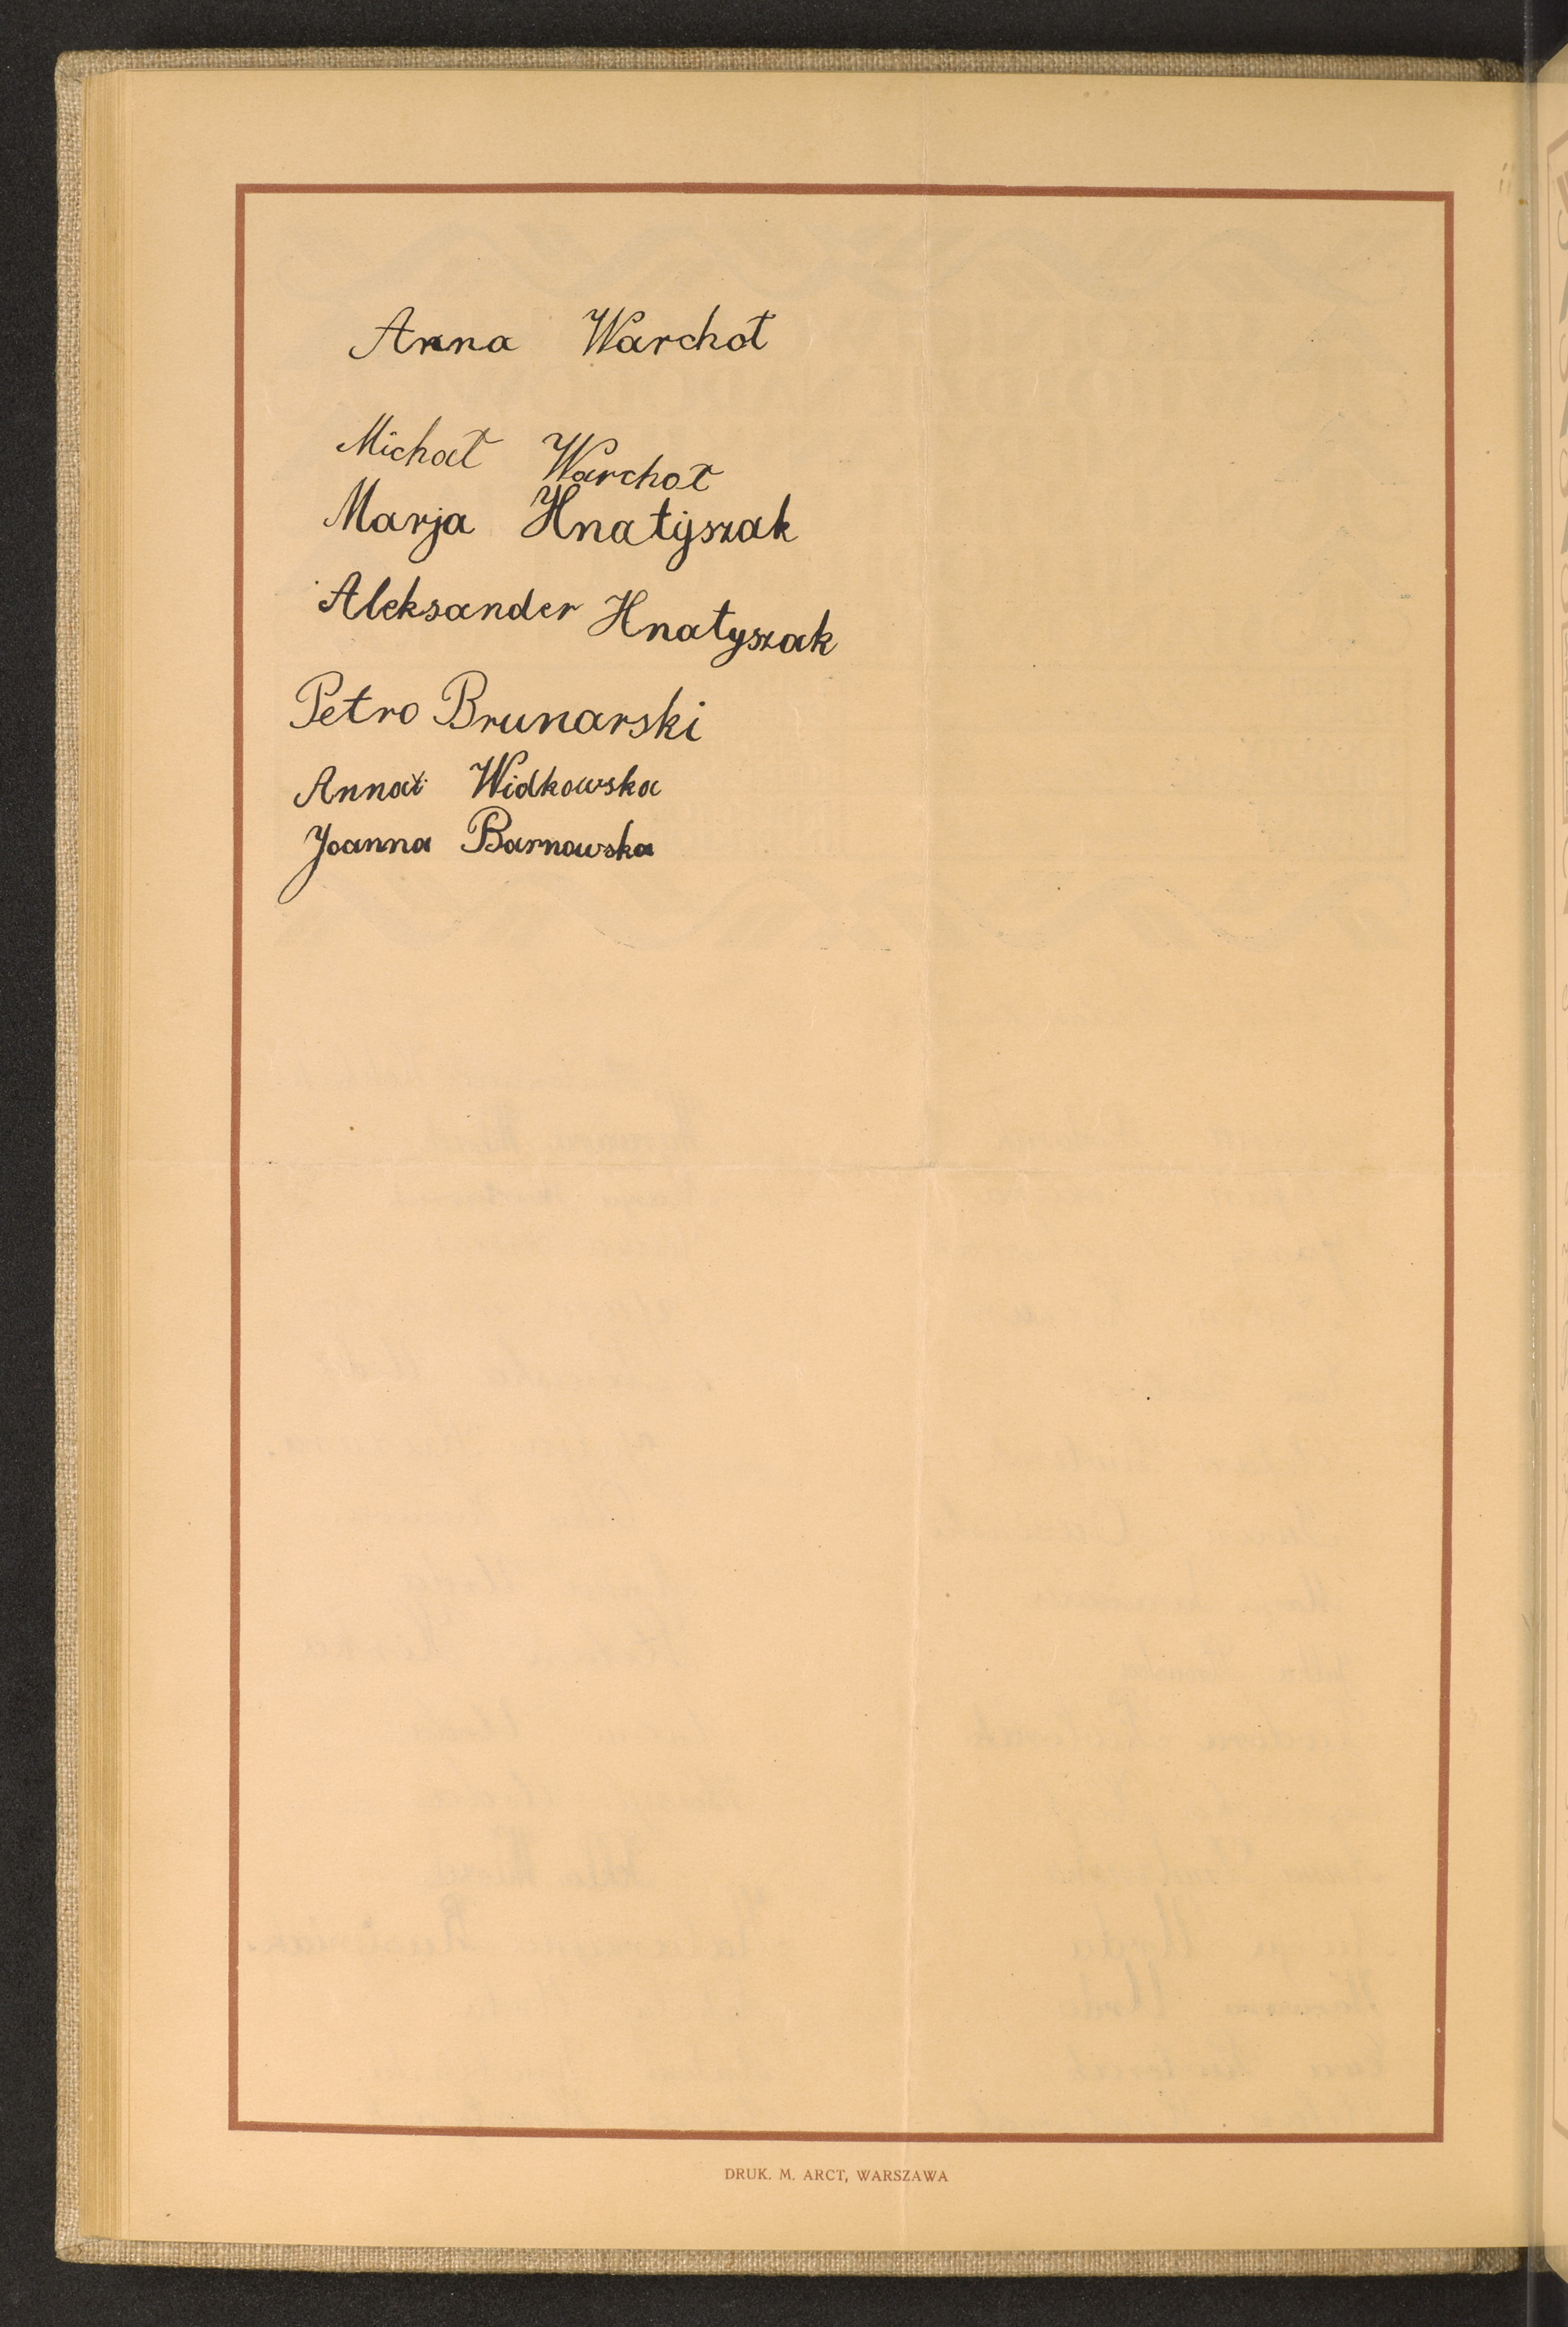 Anna Warchoł
Michał Warchoł
Marja Hnatyszak
Aleksander Hnatyszak
Petro Brunarski
Anna Widkowska
Joanna Barnowska
DRUK. M. ARCT, WARSZAWA